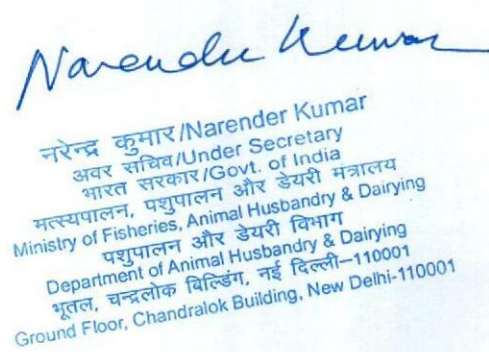 Narender Kumar
नरेन्द्र कुमार/Narender Kumar
अवर सचिव/Under Secretary
भारत सरकार/Govt. of India
मत्स्यपालन, पशुपालन और डेयरी मंत्रालय
Ministry of Fisheries, Animal Husbandry & Dairying
पशुपालन और डेयरी विभाग
Department of Animal Husbandry & Dairying
भूतल, चन्द्रलोक बिल्डिंग, नई दिल्ली–110001
Ground Floor, Chandralok Building, New Delhi-110001